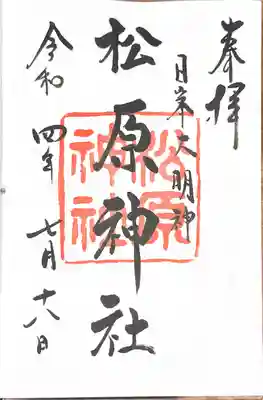 奉拝
日栄大明神
松原神社
松原神社
令和四年七月十八日